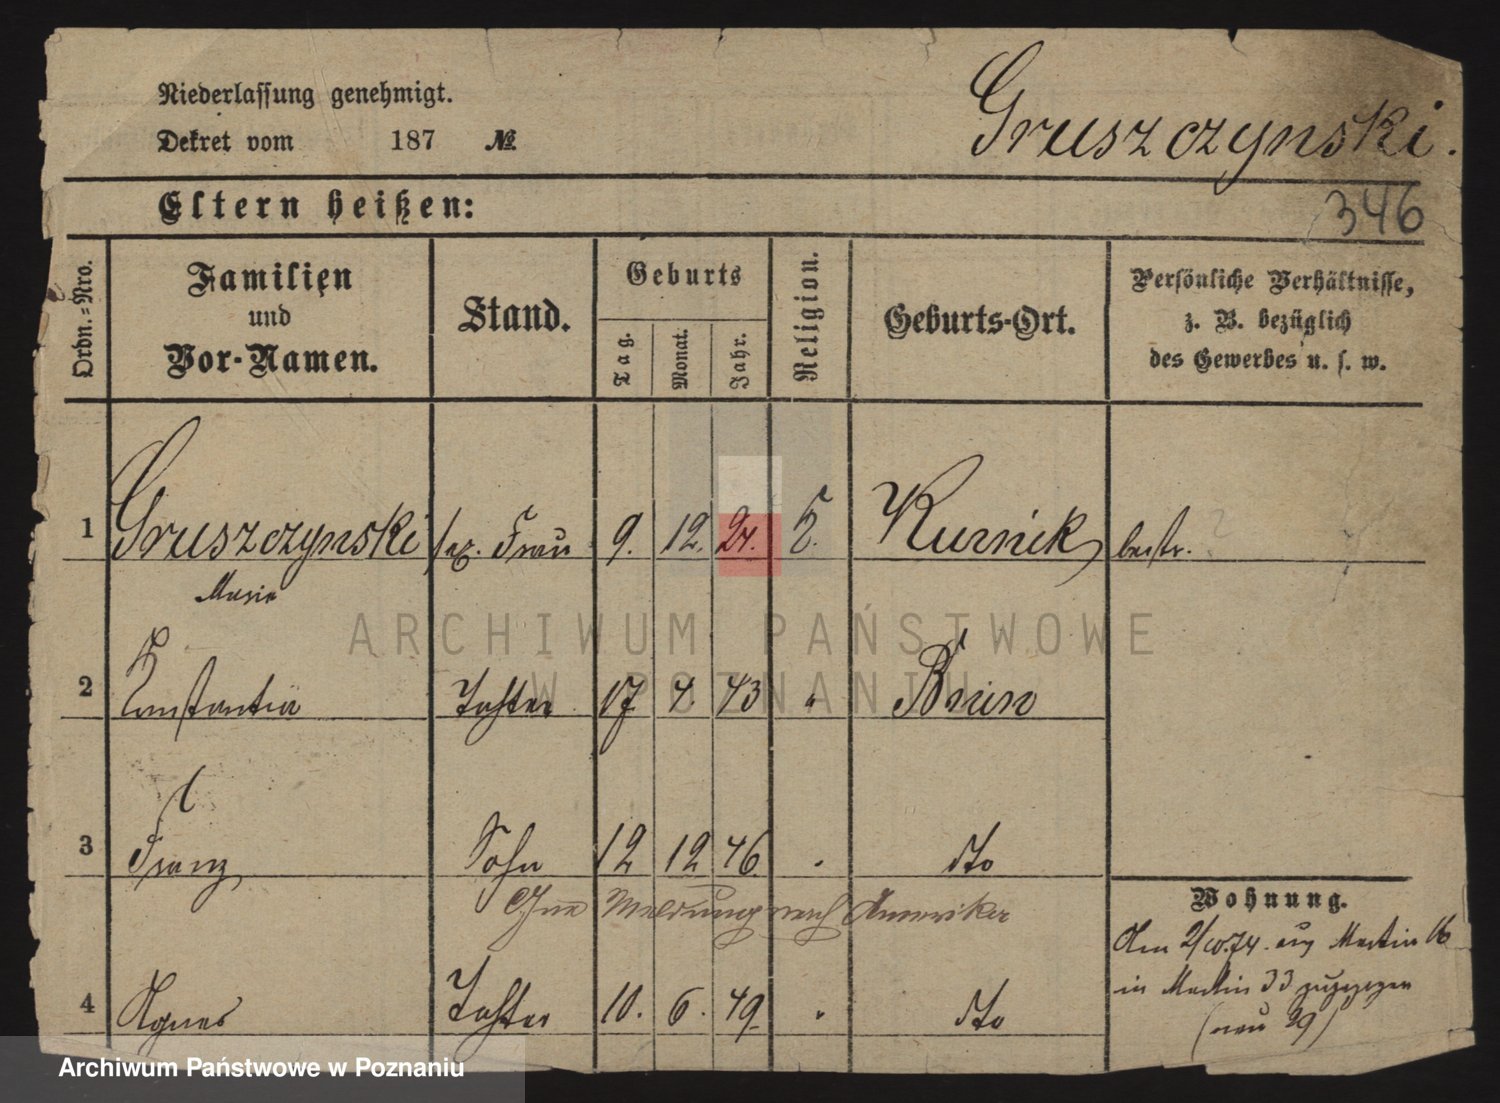 Niederlassung genehmigt.
Dekret vom 187 №
Gruszczynski.
Eltern heißen:
346
Ordn.-Nro.
Familien
und
Vor-Namen.
Stand.
Geburts
Tag.
Monat.
Jahr.
Religion.
Geburts-Ort.
Persönliche Verhältnisse,
z. B. bezüglich
des Gewerbes u. s. w.
1 Gruszczynski Frau 9. 12. 24. Kurnik
Marie
2 Konstantia Tochter 17 4. 43 " Bnin
3 Franz Sohn 12 12 46. " dto
Ohne Meldung nach Amerika
4 Agnes Tochter 10. 6. 49. " dto
Wohnung.
Am 2/10.74. aus Martin 16
in Martin 33 zugezogen
(neu 39)
ARCHIWUM PAŃSTWOWE
W POZNANIU
Archiwum Państwowe w Poznaniu